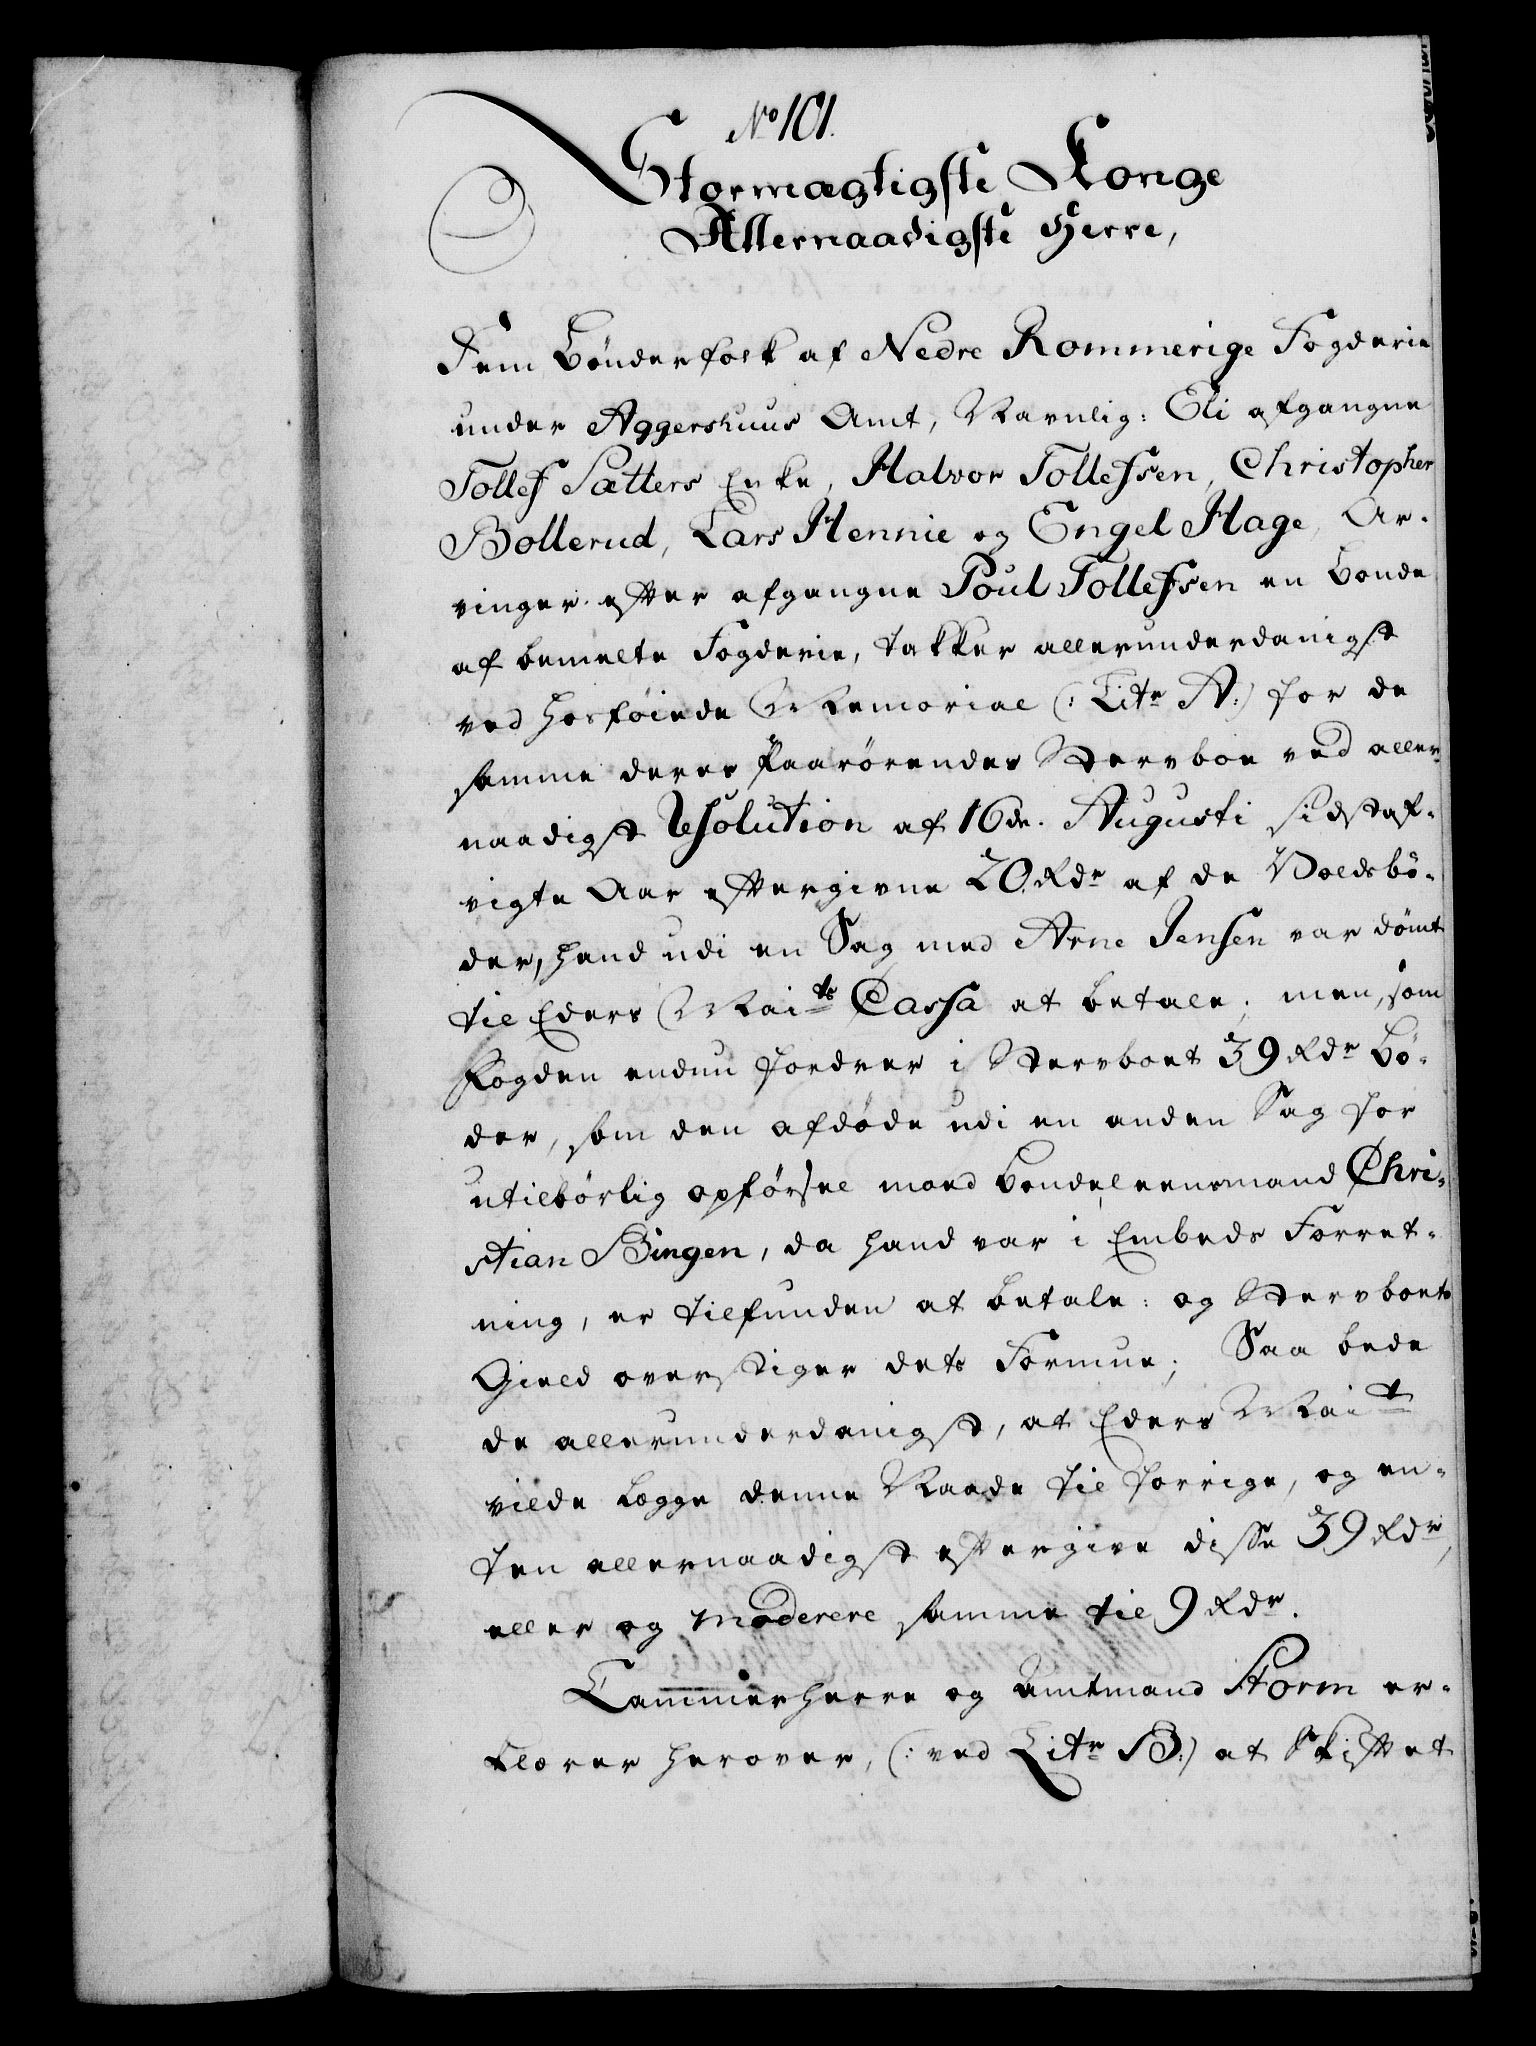 No 101.
Stormægtigste Konge
Allernaadigste Herre,
Fem Bønderfolk af Nedre Rommerige Fogderie
under Aggershuus Amt, Navnlig: Eli afgangne
Tollef Sætters Enke, Halvor Tollefsen, Christopher
Bollerud, Lars Hennie og Engel Hage, Ar-
vinger efter afgangne Poul Tollefsen en Bonde
af bemelte Fogderie, takker allerunderdanigst
ved hosføiede Memorial (: Litr A:) for de
samme deres Paarørendes Stervboe ved aller-
naadigst Resolution af 16de. Augusti sidstaf-
vigte Aar eftergivne 20 Rdr af de Voldsbø-
der, hand udi en Sag med Arne Jensen var dømt
til Eders Maits Cassa at betale; men, som
Fogden endnu fordrer i Stervboet 39 Rdr Bø-
der, som den afdøde udi en anden Sag for
utilbørlig opførsel moed Bondelensmand Chri-
stian Bingen, da hand var i Embeds Forret-
ning, er tilfunden at betale: og Stervboets
Gield overstiger dets Formue; Saa bede
de allerunderdanigst, at Eders Mait
vilde legge denne Naade til forrige, og en-
ten allernaadigst eftergive disse 39 Rdr,
eller og moderere samme til 9 Rdr.
Cammerherre og Amtmand Storm er-
klærer herover, (: ved Litr B:) at Skiftet